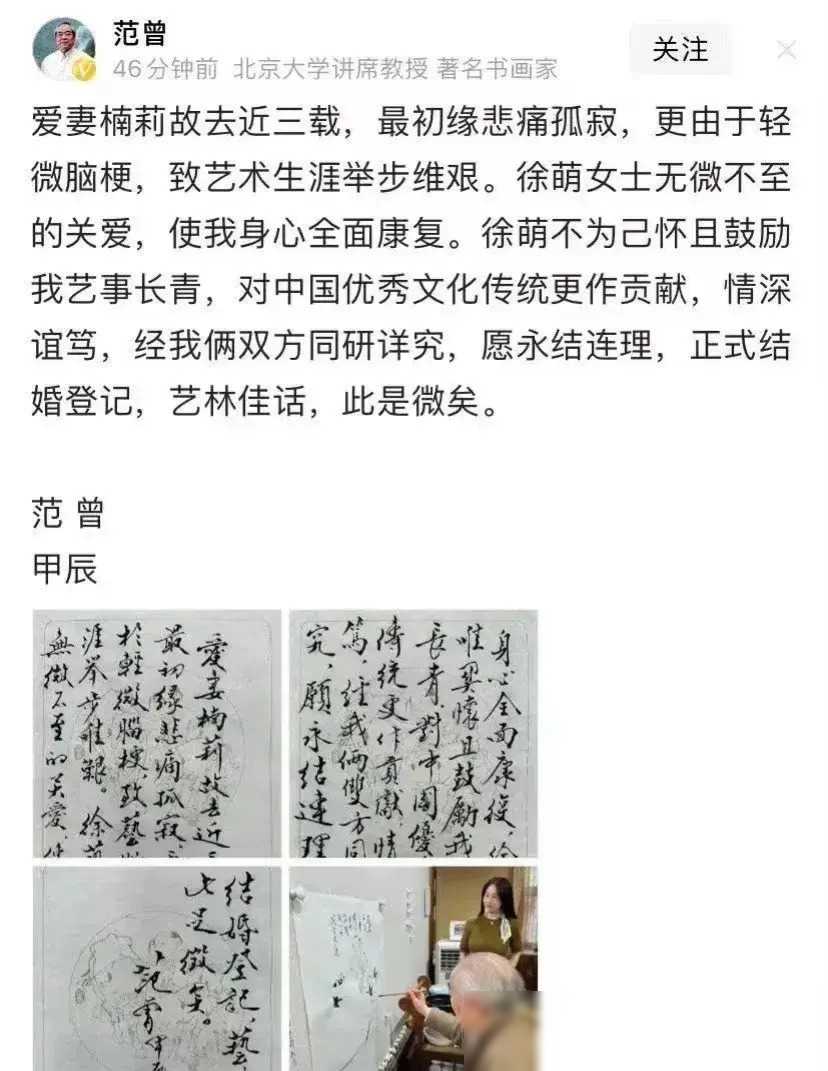 范曾
46分钟前 北京大学讲席教授 著名书画家
关注
爱妻楠莉故去近三载，最初缘悲痛孤寂，更由于轻
微脑梗，致艺术生涯举步维艰。徐萌女士无微不至
的关爱，使我身心全面康复。徐萌不为己怀且鼓励
我艺事长青，对中国优秀文化传统更作贡献，情深
谊笃，经我俩双方同研详究，愿永结连理，正式结
婚登记，艺林佳话，此是微矣。
范 曾
甲辰
愛妻楠莉故去近
最初緣悲痛孤寂，
於輕微腦梗，致藝
涯举步维艱。徐
無微不至的关愛，
身心全面康復，
懷且鼓勵我
長青，對中國優
傳統更作貢獻，情
篤，經我倆雙方同
究，願永结連理
结婚登記，藝
此是微矣。
范曾